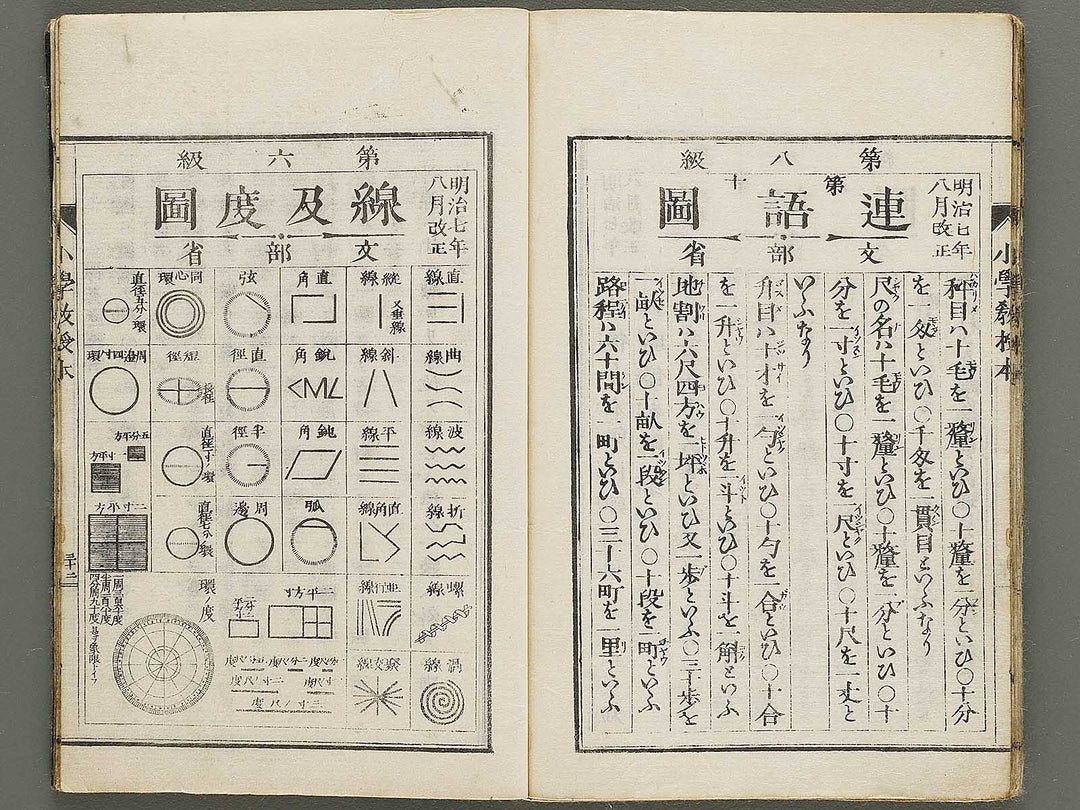 第八級
明治七年
八月改正
連語圖
第十
文部省
秤目ハ十毛を一釐といひ〇十釐を一分といひ〇十分
を一匁といひ〇千匁を一貫目といふなり
尺の名ハ十毛を一釐といひ〇十釐を一分といひ〇十
分を一寸といひ〇十寸を一尺といひ〇十尺を一丈と
いふなり
舛目ハ十才を一勺といひ〇十勺を一合といひ〇十合
を一升といひ〇十升を一斗といひ〇十斗を一斛といふ
地割ハ六尺四方を一坪といひ又一歩といふ〇三十歩を
一畝といひ〇十畝を一段といひ〇十段を一町といふ
路程ハ六十間を一町といひ〇三十六町を一里といふ
小學教授本
第六級
明治七年
八月改正
線及度圖
文部省
直線
曲線
波線
折線
螺線
渦線
縦線
又垂線
斜線
平線
直角線
並行線
聚支線
直角
鋭角
鈍角
弧
二寸平方
弦
直徑
半徑
周邊
同心環
短徑
長徑
直徑一寸ノ環
直徑七分ノ環
環ノ度
直徑五分ノ環
周邊四寸ノ環
五分平方
一寸平方
二寸平方
二寸ノ尺度
三寸ノ尺度
一周三百六十度
半周百八十度
四分周九十度
小學教授本
三十二